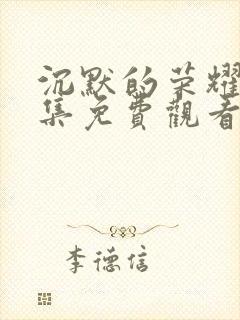 沉默的荣耀
集免費觀看
李德信